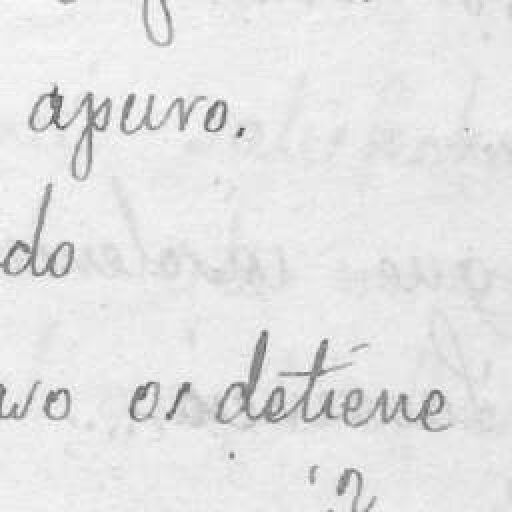 apuro.
do
os detiene